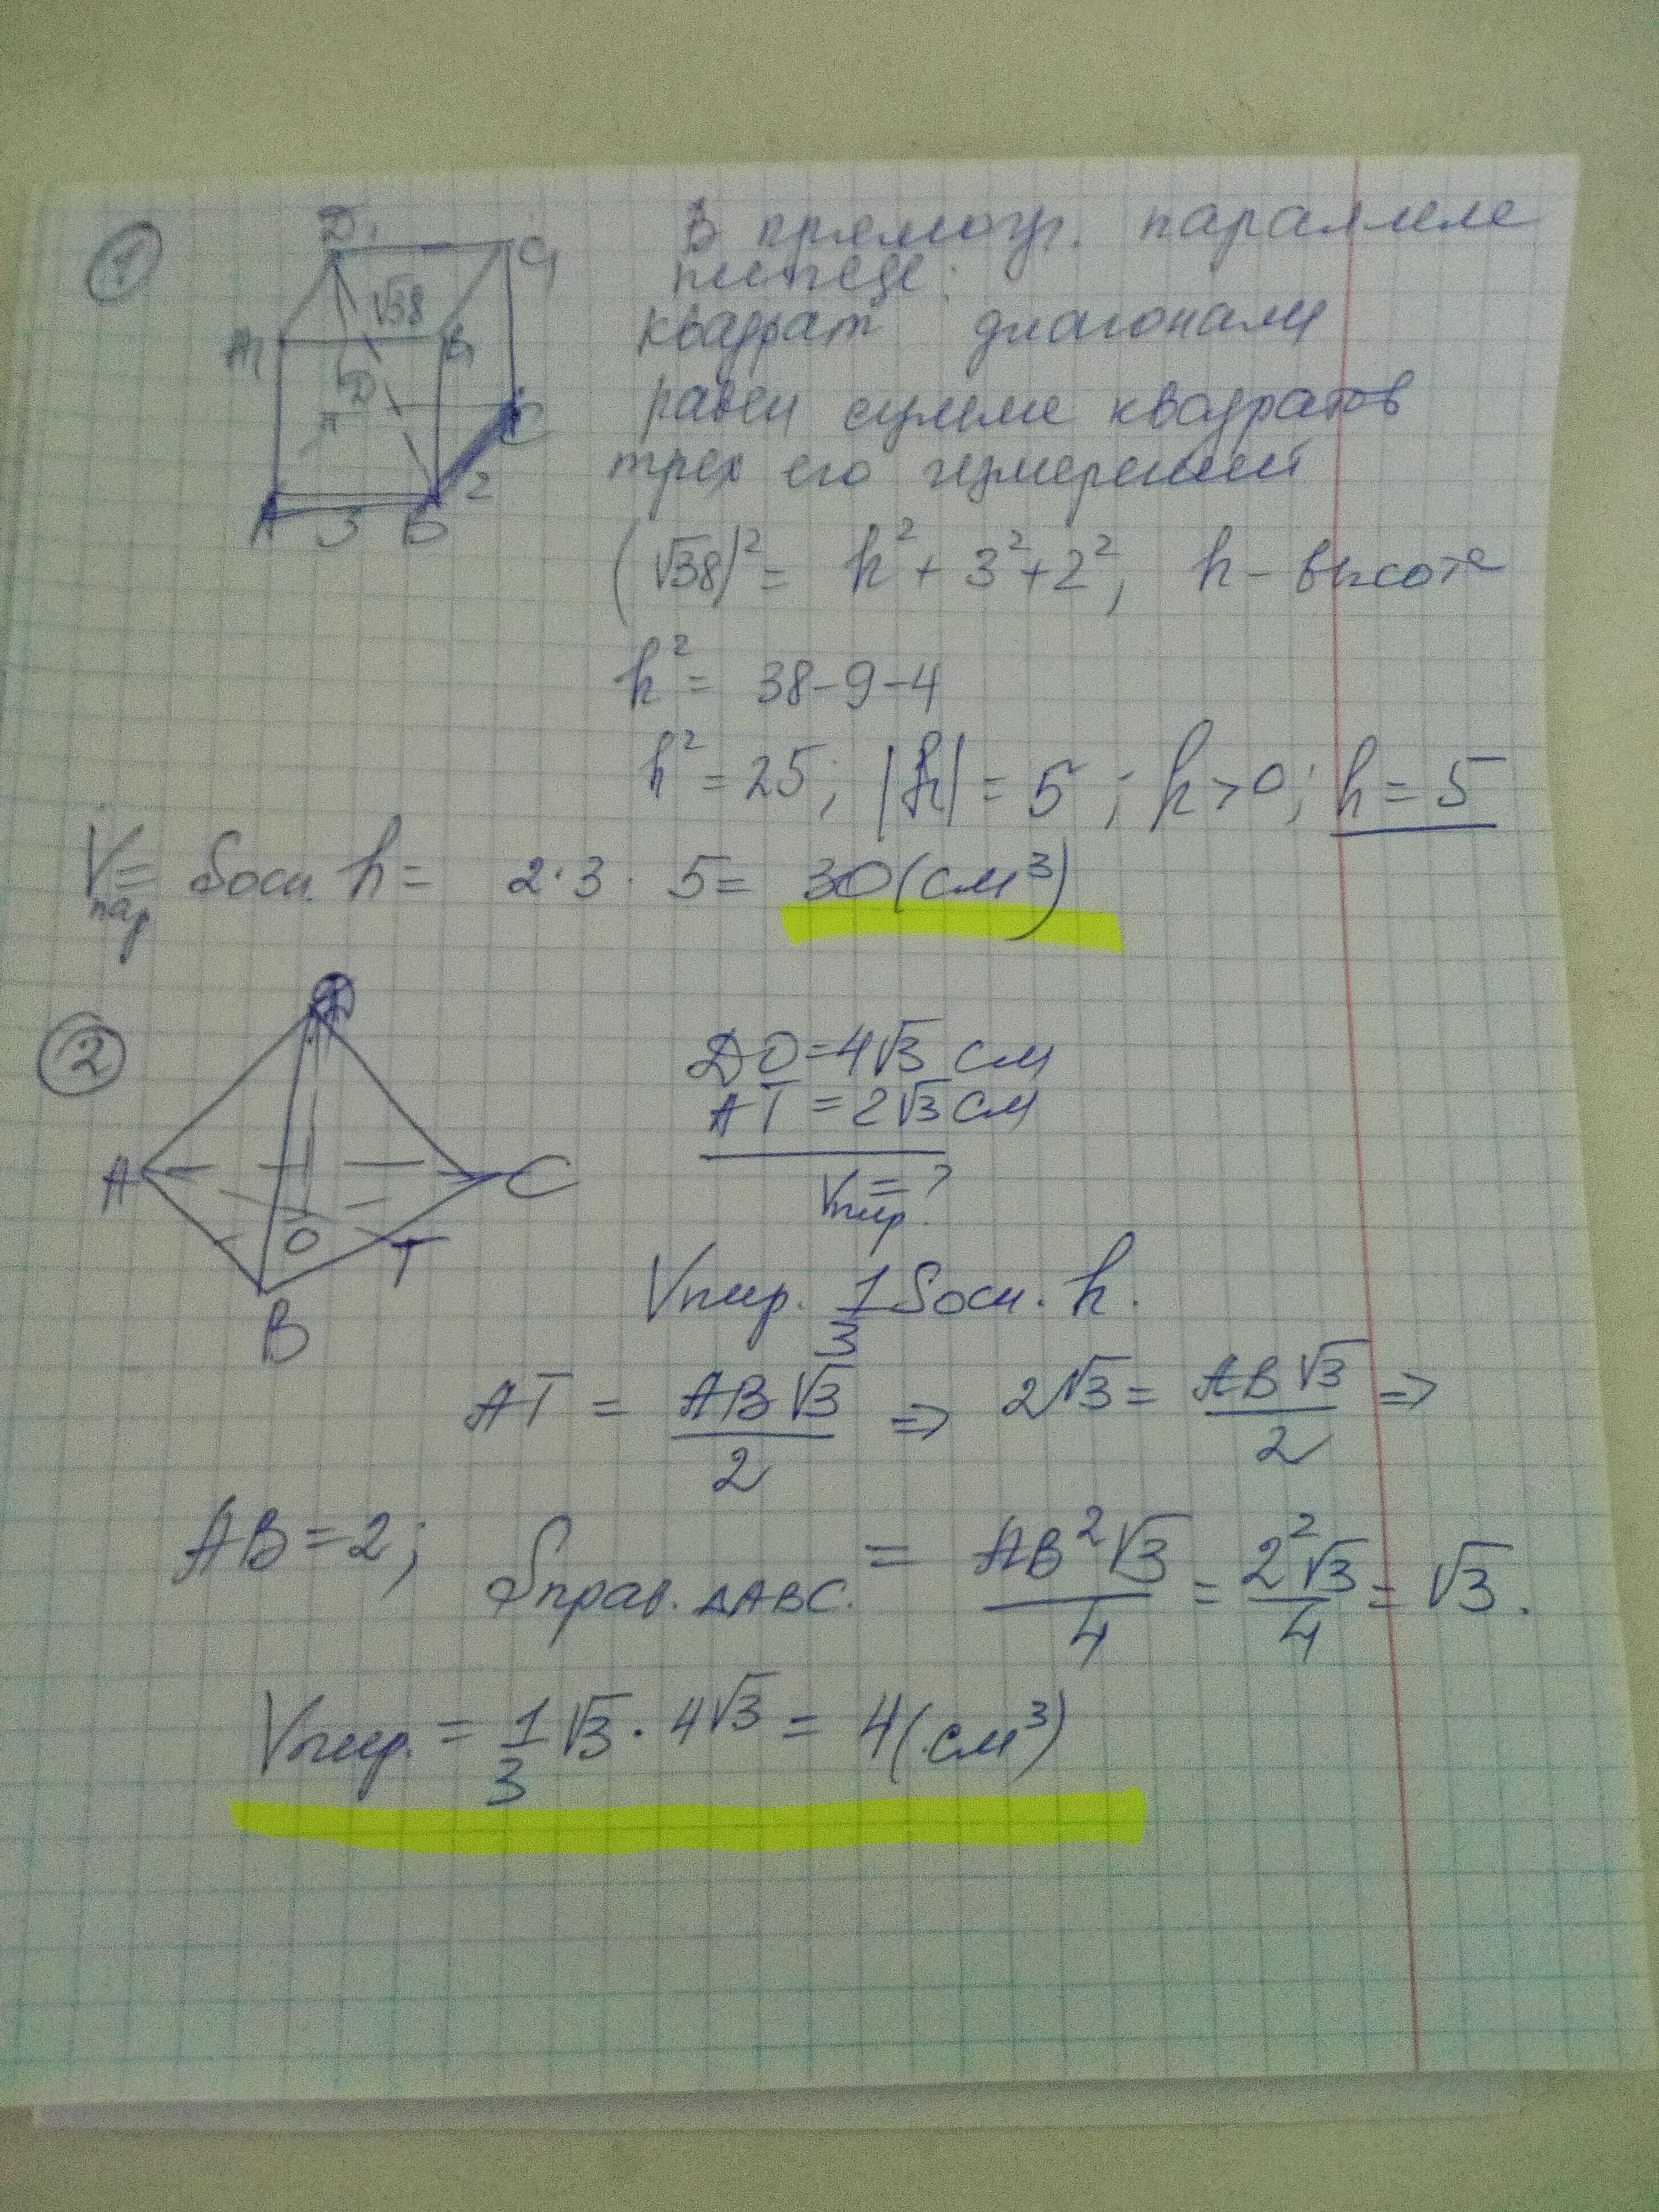 1
D₁ C₁
√38
A₁ B₁
D
C
2
A 3 B
В прямоуг. параллеле
пипеде:
квадрат диагонали
равен сумме квадратов
трех его измерений
(√38)² = h² + 3² + 2², h - высота
h² = 38-9-4
h² = 25; |h| = 5; h>0; h = 5
Vпар = Sосн. h = 2·3·5= 30(см³)
2
DO=4√3 см
AT = 2√3 см
A C
O T
B
Vпир. = ?
Vпир. 1/3 Sосн. h.
AT = AB√3/2 => 2√3 = AB√3/2 =>
AB=2; Sправ. ΔABC. = AB²√3/4 = 2²√3/4 = √3.
Vпир. = 1/3 √3 · 4√3 = 4(см³)